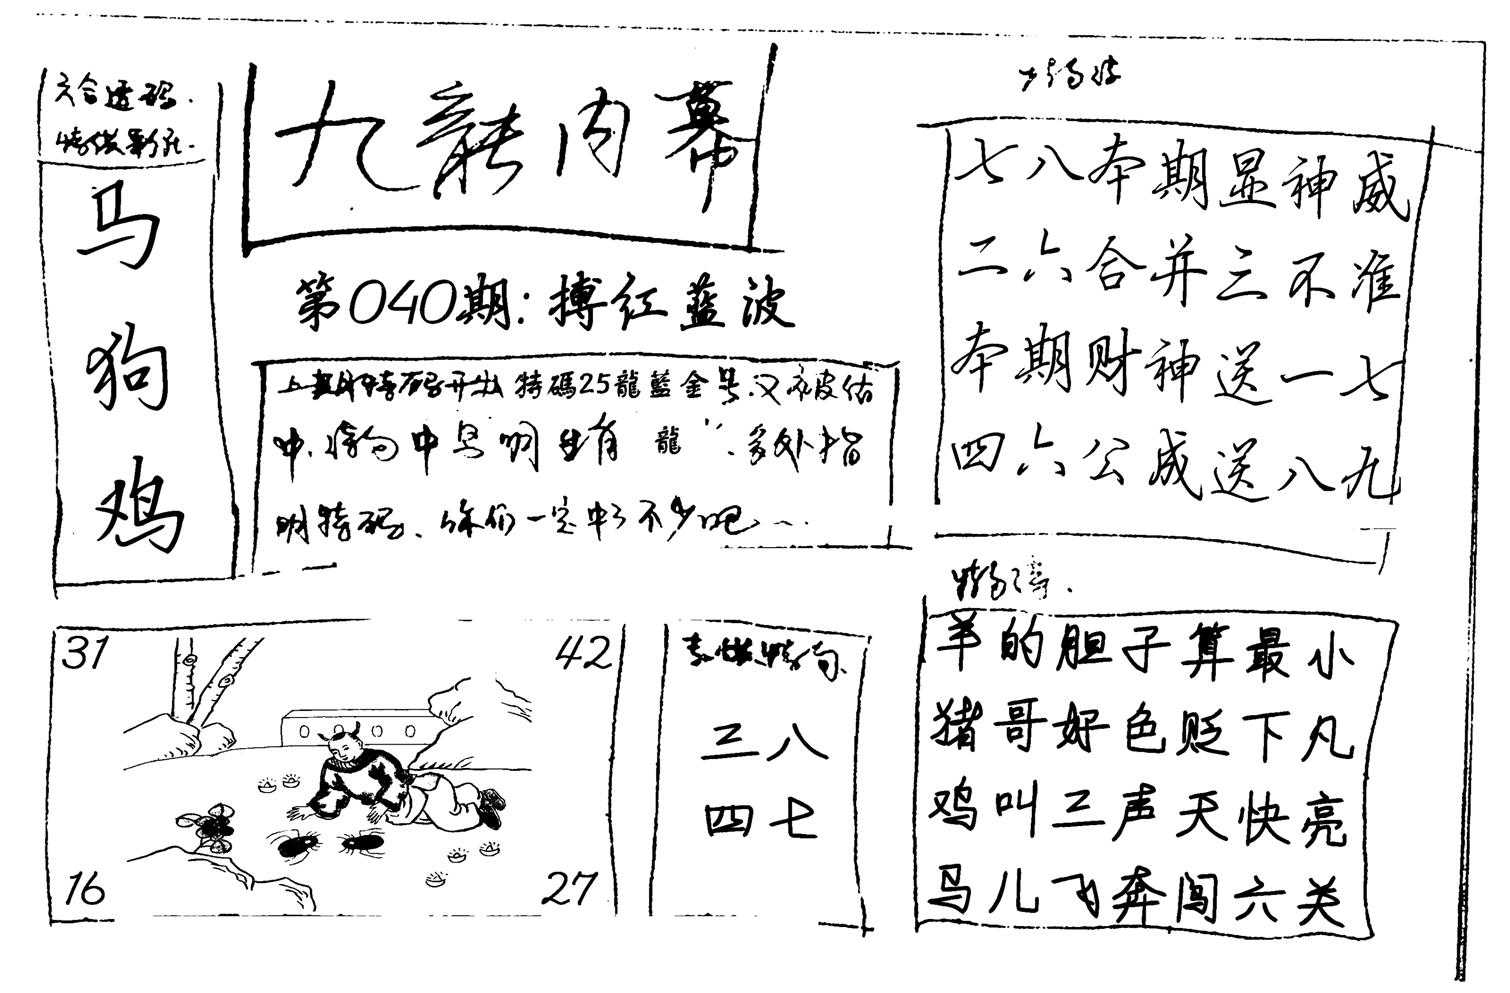 六合透码.
马
狗
鸡
九龍内幕
第040期:搏红蓝波
上期特码开出特碼25龍藍金号.又被估
中.特句中早明生肖"龍".多处指
明特码、你们一定中了不少吧...
七八本期显神威
二六合并三不准
本期财神送一七
四六公成送八九
羊的胆子算最小
猪哥好色贬下凡
鸡叫三声天快亮
马儿飞奔闯六关
31
42
16
27
三八
四七